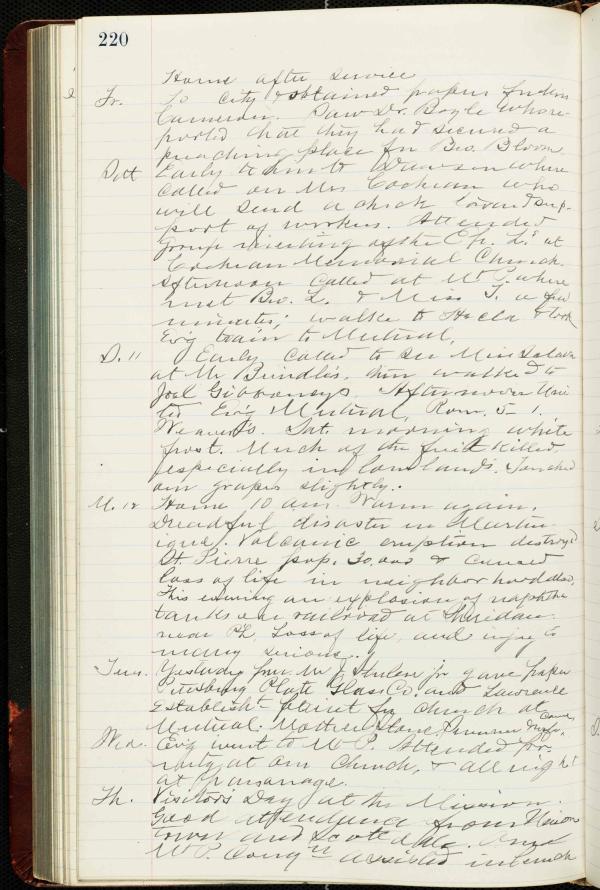 220
Home after service
Fr. to city & obtained papers from
Cameron. Saw Dr. Boyle who re-
ported that they had secured a
preaching place for Bro. Bloom.
Satt Early to Dawson where
called on Mrs Cochran who
will send a check toward sup-
port of workers. Attended
Group meeting of the Ep. L's at
Cochran Memorial Church.
Afternoon called at Mt P. where
met Bro. L. & Miss T. a few
minutes; walk to Hecla & took
Ev'g train to Mutual.
S. 11 Early called to see Miss
at Mr Brindle's, then walked to
Joel Gibbonsys. Afternoon Uni-
ted Ev'g Mutual, Rom. 5-1.
Weaver's. Sat. morning white
frost. Much of the fruit killed
especially in low lands. Touched
our grapes slightly.
M. 12 Home 10 am. Warm again.
Dreadful disaster in Martin-
ique. Volcanic eruption destroy'd
St. Pierre pop. 30,000 & caused
loss of life in neighborhood also.
This evening an explosion of naphtha
tanks on railroad at Sheridan
near Ph. Loss of life and injury to
many serious.
Tues. Yesterday from Mr J jr gave paper
Pittsburg Plate Glass Co. and Lawrence
Establisht paint for church at
Mutual.
Wed. Ev'g went to Mt P. Attended
at our Church, & all night
at parsonage.
Th. Visitor's Day at the Mission.
Good attendance from Union
town and Scottdale. And
Mt P. Cong'n assisted in lunch